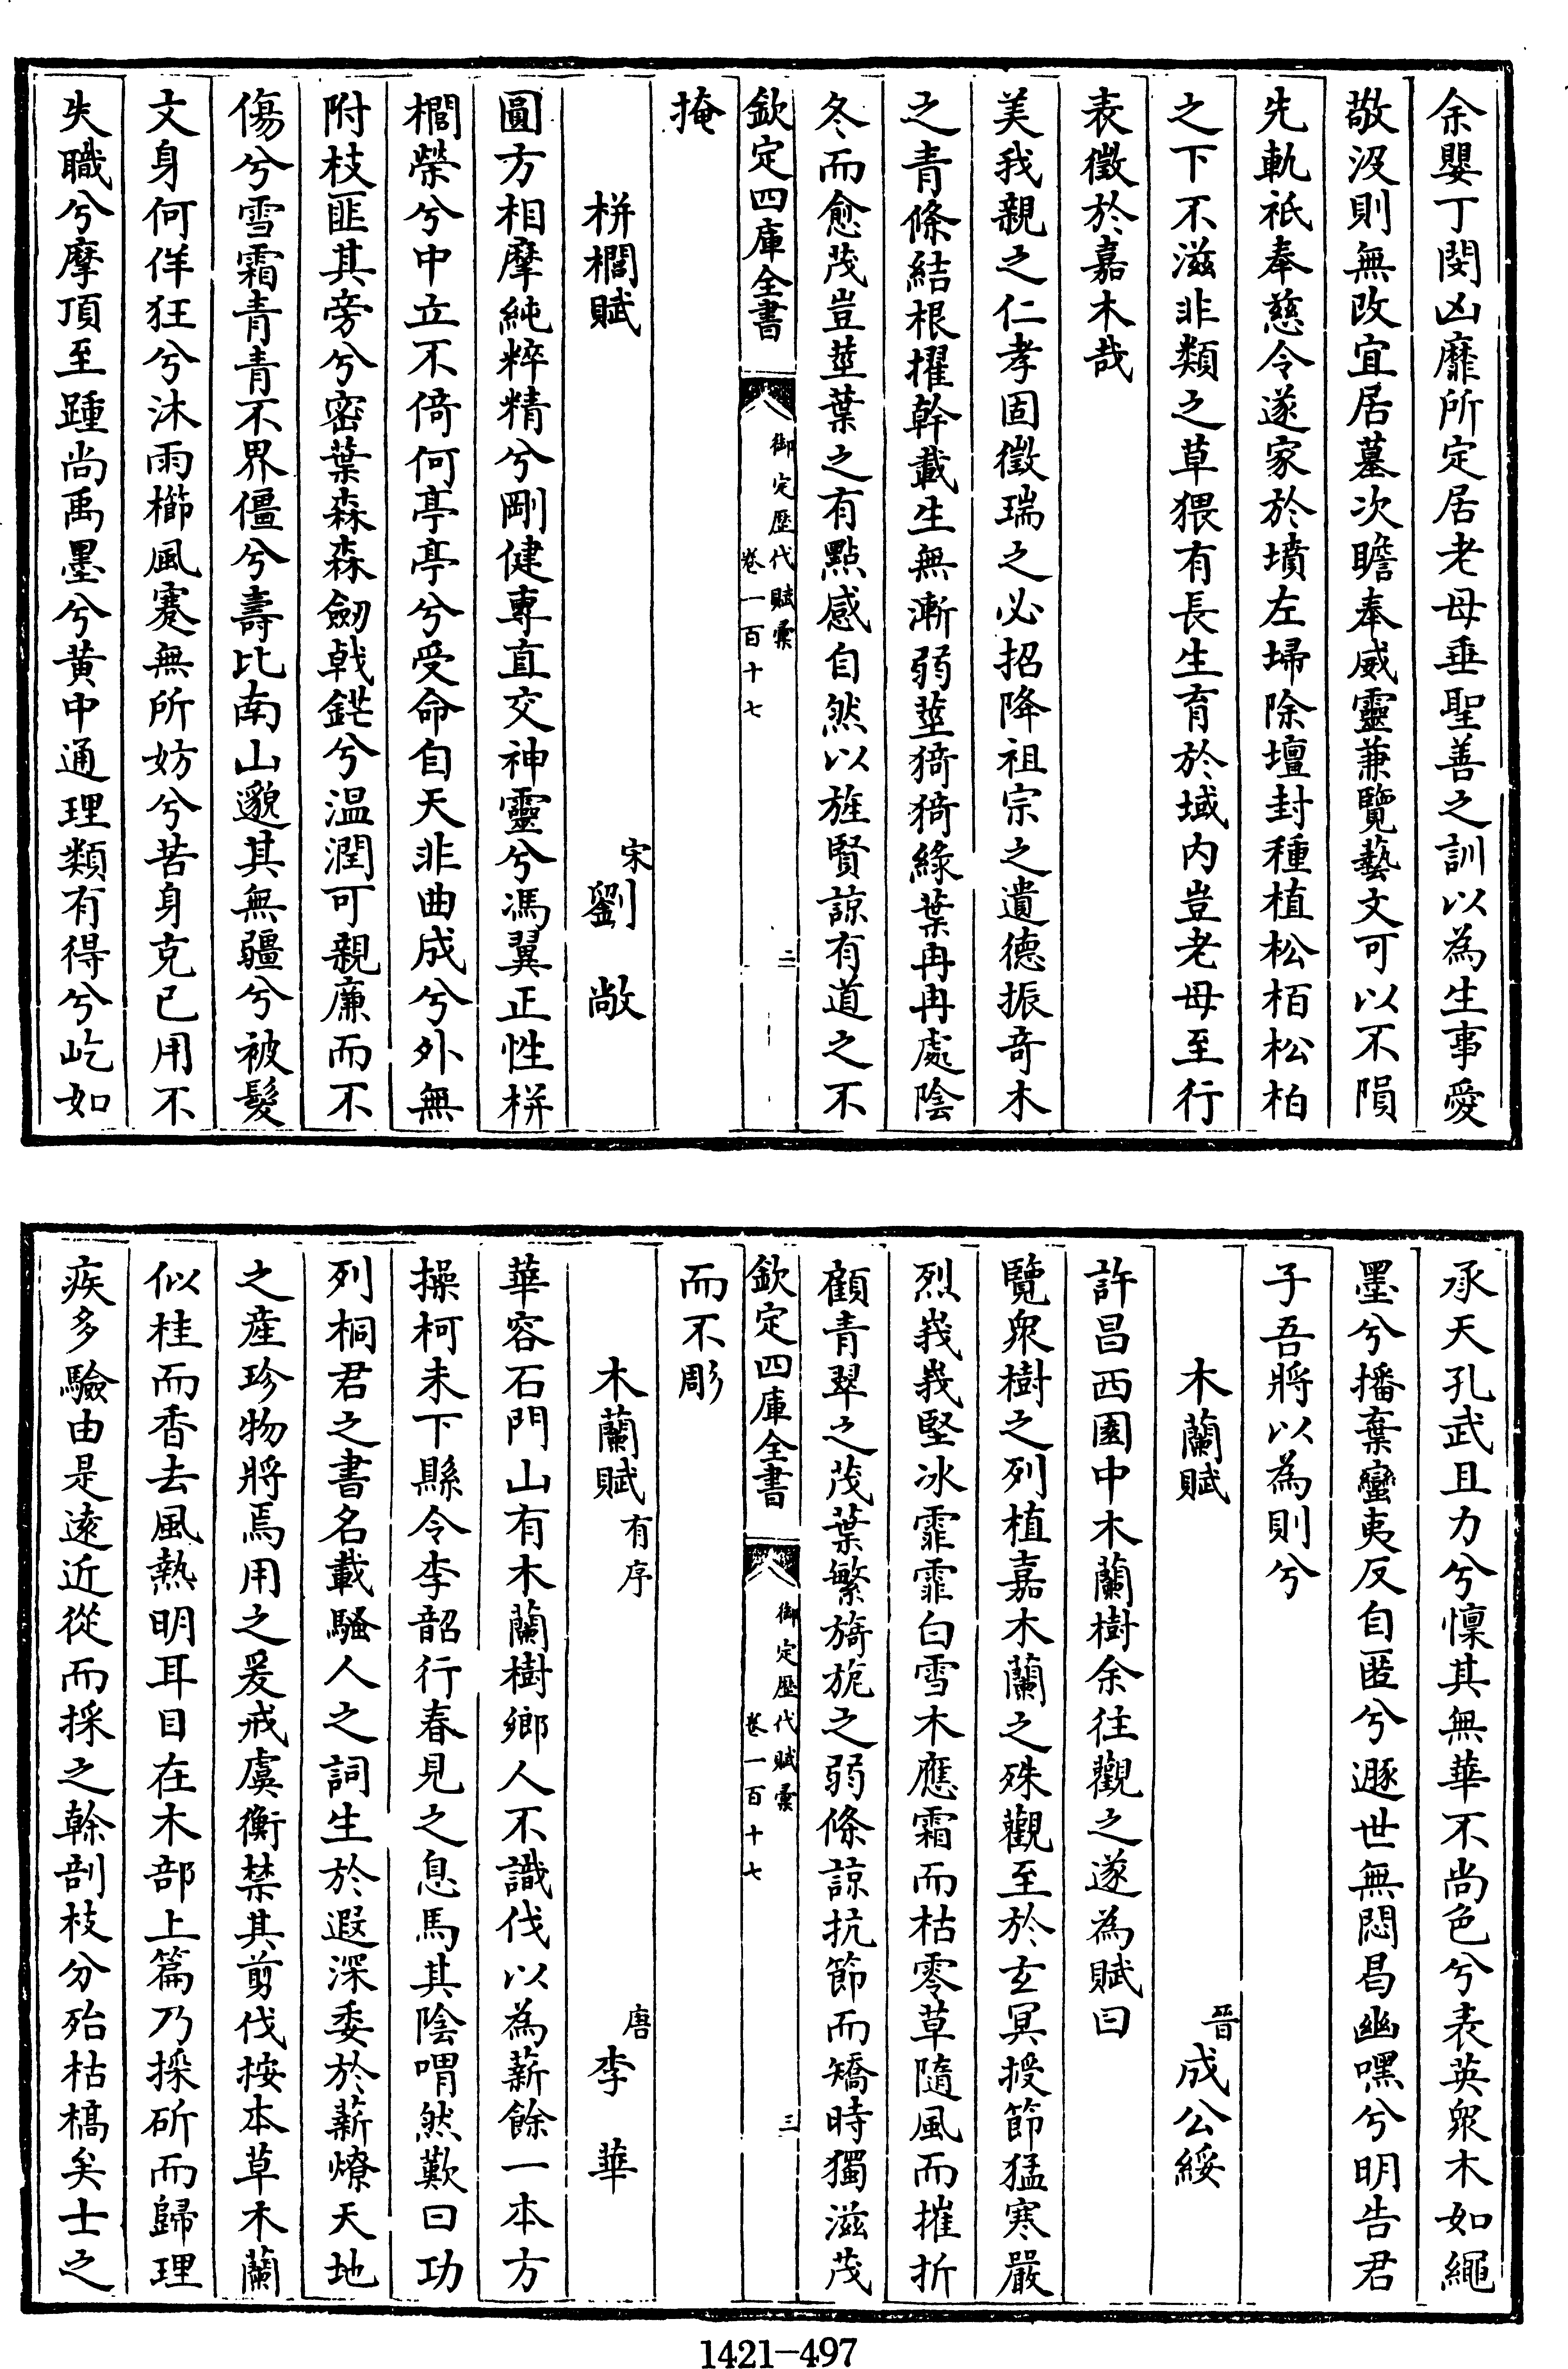 余嬰丁閔凶靡所定居老母垂聖善之訓以為生事愛
敬沒則無改宜居墓次瞻奉威靈兼覽藝文可以不隕
先軌祇奉慈令遂家於墳左埽除壇封種植松栢松柏
之下不滋非類之草猥有長生育於域内豈老母至行
表徵於嘉木哉
美我親之仁孝固徵瑞之必招降祖宗之遺德振奇木
之青條結根擢幹載生無漸弱莖猗猗綠葉冉冉處陰
冬而愈茂豈莖葉之有點感自然以旌賢諒有道之不
欽定四庫全書
御定歷代賦彙
卷一百十七
二
掩
栟櫚賦
宋劉敞
圓方相摩純粹精兮剛健專直交神靈兮馮翼正性栟
櫚榮兮中立不倚何亭亭兮受命自天非曲成兮外無
附枝匪其旁兮密葉森森劒戟鋩兮温潤可親廉而不
傷兮雪霜青青不畀僵兮壽比南山邈其無疆兮被髮
文身何佯狂兮沐雨櫛風蹇無所妨兮苦身克已用不
失職兮摩頂至踵尚禹墨兮黄中通理類有得兮屹如
承天孔武且力兮懍其無華不尚色兮表英衆木如繩
墨兮播棄蠻夷反自匿兮遯世無悶曷幽嘿兮明告君
子吾將以為則兮
木蘭賦
晉成公綏
許昌西園中木蘭樹余往觀之遂為賦曰
覽衆樹之列植嘉木蘭之殊觀至於玄冥授節猛寒嚴
烈峩峩堅冰霏霏白雪木應霜而枯零草隨風而摧折
顧青翠之茂葉繁旖旎之弱條諒抗節而矯時獨滋茂
欽定四庫全書
御定歷代賦彙
卷一百十七
三
而不彫
木蘭賦有序
唐李華
華容石門山有木蘭樹鄉人不識伐以為薪餘一本方
操柯未下縣令李韶行春見之息馬其陰喟然歎曰功
列桐君之書名載騷人之詞生於遐深委於薪燎天地
之産珍物將焉用之爰戒虞衡禁其剪伐按本草木蘭
似桂而香去風熱明耳目在木部上篇乃採斫而歸理
疾多驗由是遠近從而採之幹剖枝分殆枯槁矣士之
1421-497